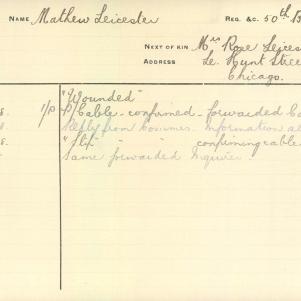 NAME Mathew Leicester REG. &C. 50th B
NEXT OF KIN Mrs Rose Leices
ADDRESS Le. Hunt Stree
Chicago.
"Wounded"
1/P P/Cable - confirmed - forwarded Ca
Reply from Commes. Information al
" " confirming cable
Same forwarded Inquirer.